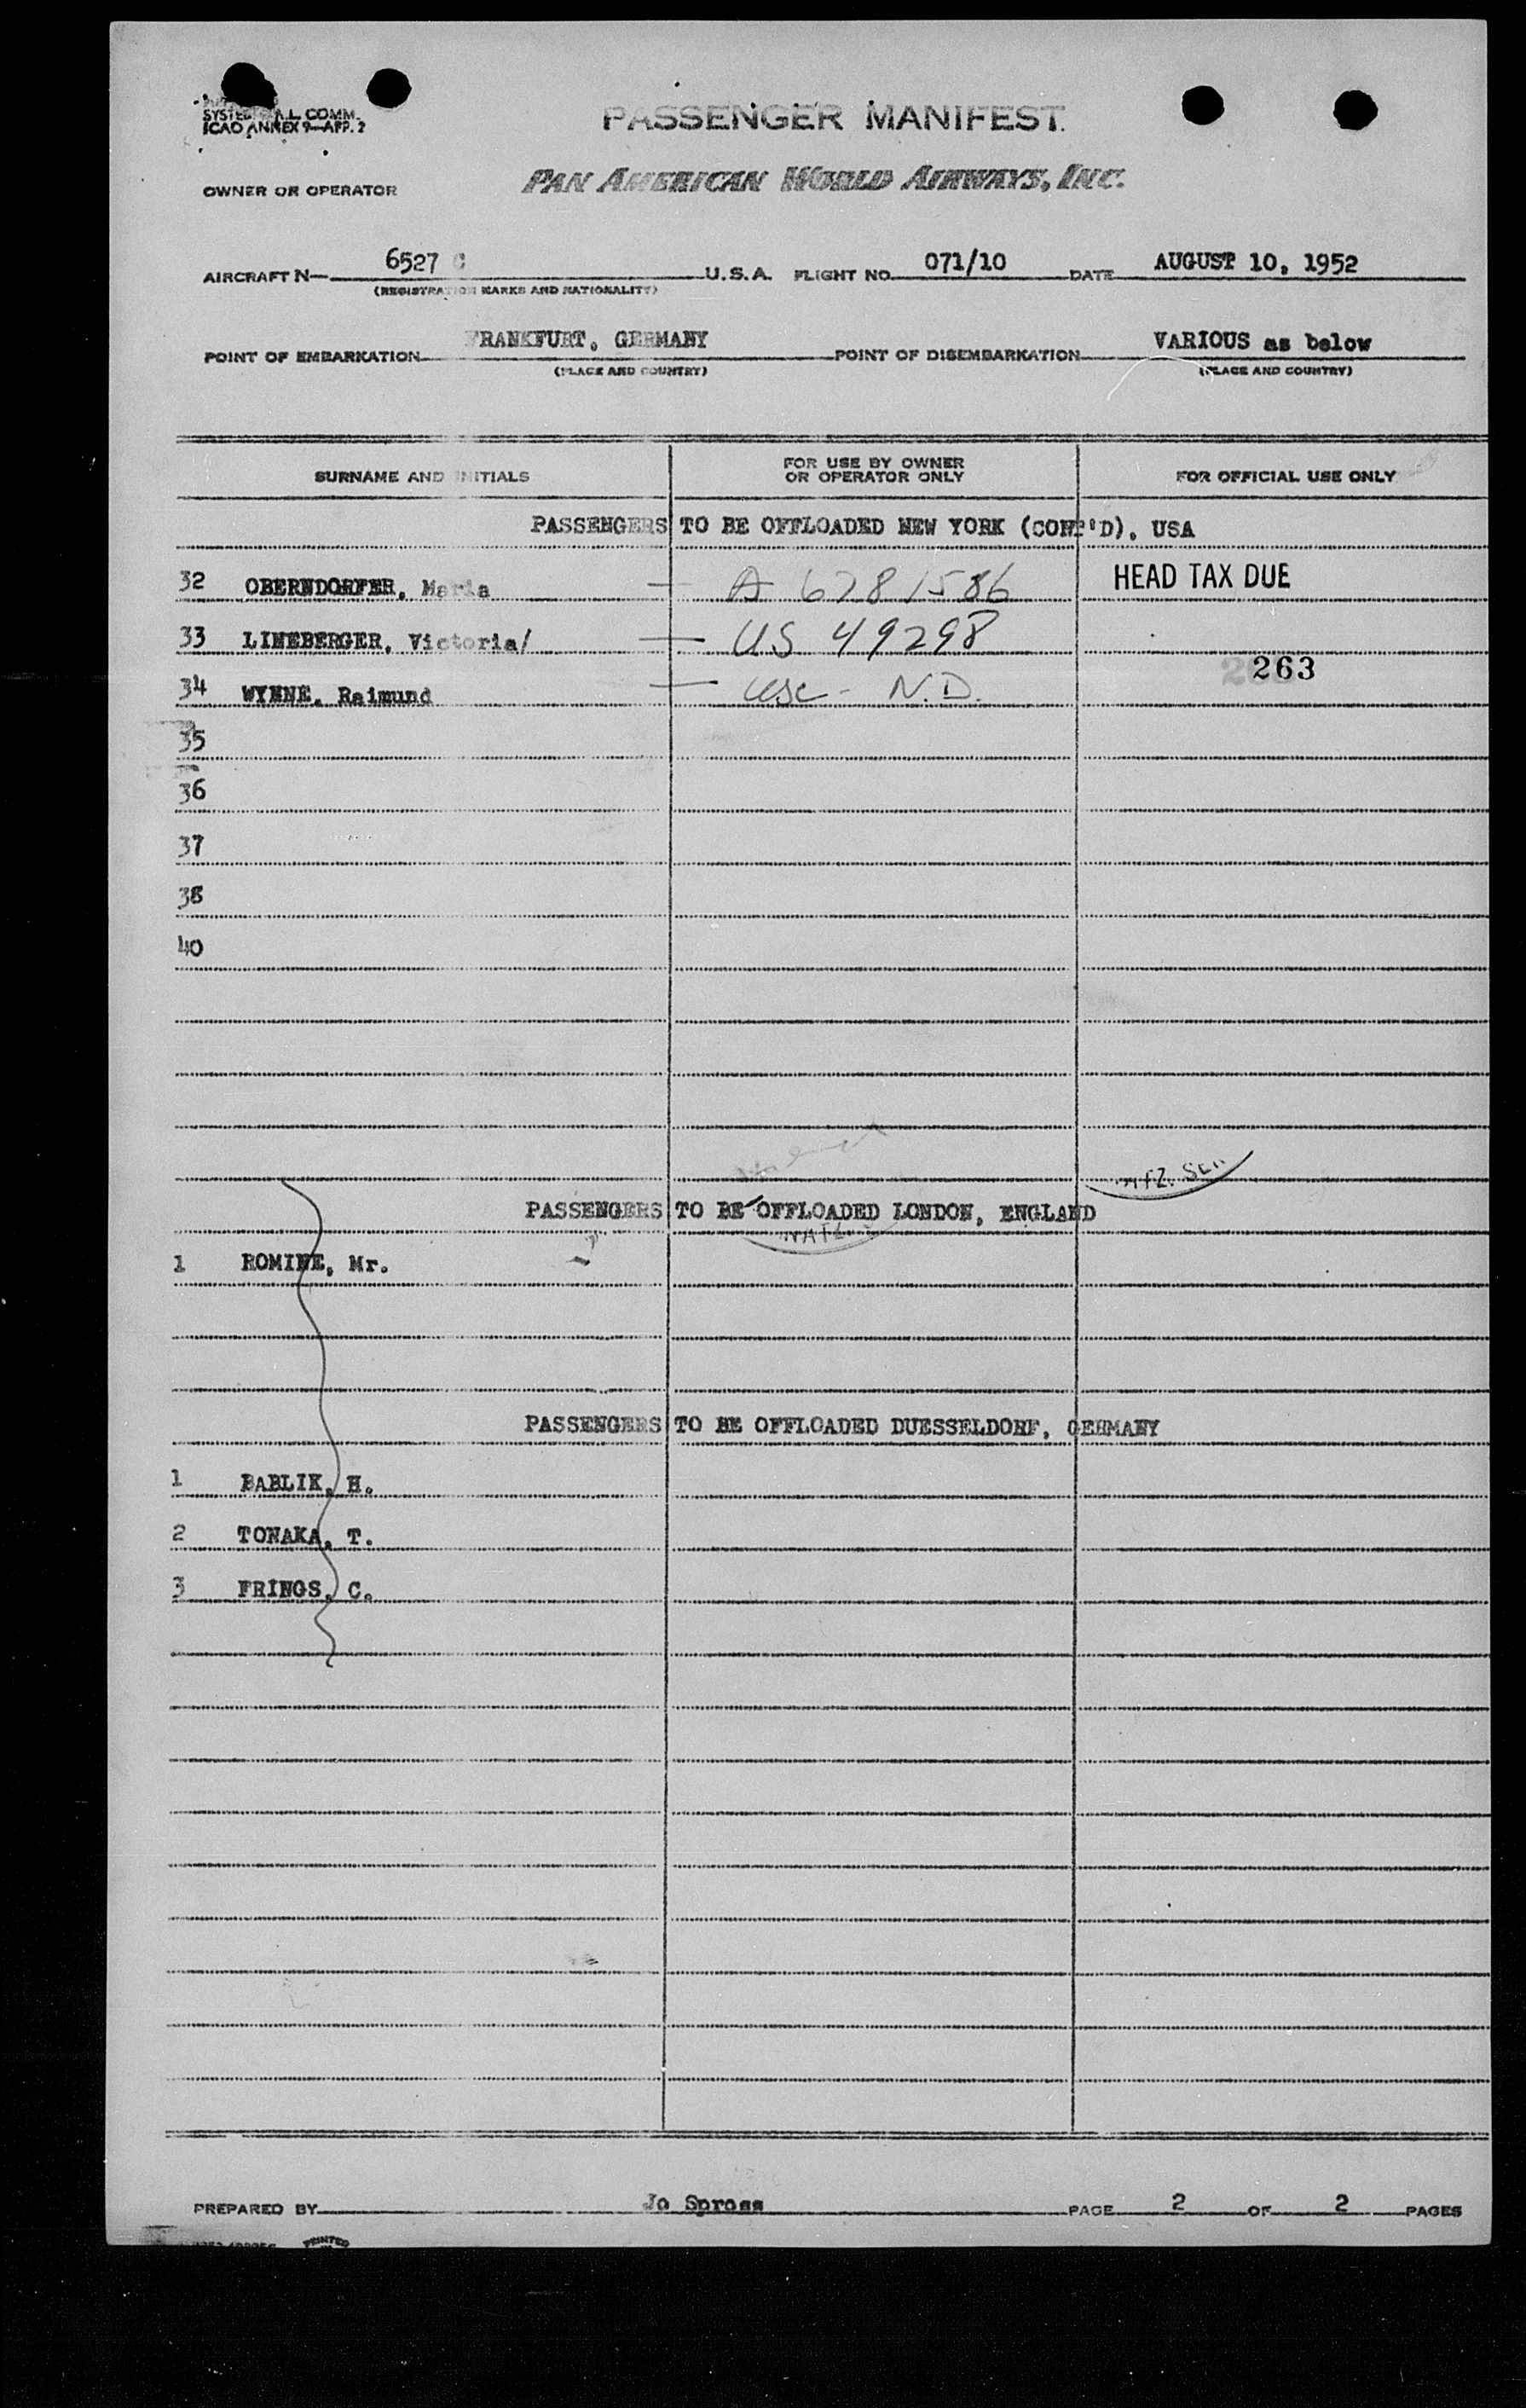 SYSTEM AL COMM.
ICAO ANNEX 9—APP. 2
PASSENGER MANIFEST
OWNER OR OPERATOR PAN AMERICAN WORLD AIRWAYS, INC.
AIRCRAFT N— 6527 C U.S.A. FLIGHT NO. 071/10 DATE AUGUST 10, 1952
(REGISTRATION MARKS AND NATIONALITY)
POINT OF EMBARKATION FRANKFURT, GERMANY POINT OF DISEMBARKATION VARIOUS as below
(PLACE AND COUNTRY) (PLACE AND COUNTRY)
SURNAME AND INITIALS FOR USE BY OWNER OR OPERATOR ONLY FOR OFFICIAL USE ONLY
PASSENGERS TO BE OFFLOADED NEW YORK (CONT'D), USA
32 OBERNDORFER, Maria — A 6781586 HEAD TAX DUE
33 LINEBERGER, Victoria/ — US 49298
263
34 WYNNE, Raimund — usc - N.D.
35
36
37
38
40
PASSENGERS TO BE OFFLOADED LONDON, ENGLAND
1 ROMINE, Mr.
PASSENGERS TO BE OFFLOADED DUESSELDORF, GERMANY
1 BABLIK, H.
2 TONAKA, T.
3 FRINGS, C.
PREPARED BY Jo Spross PAGE 2 OF 2 PAGES
PRINTED